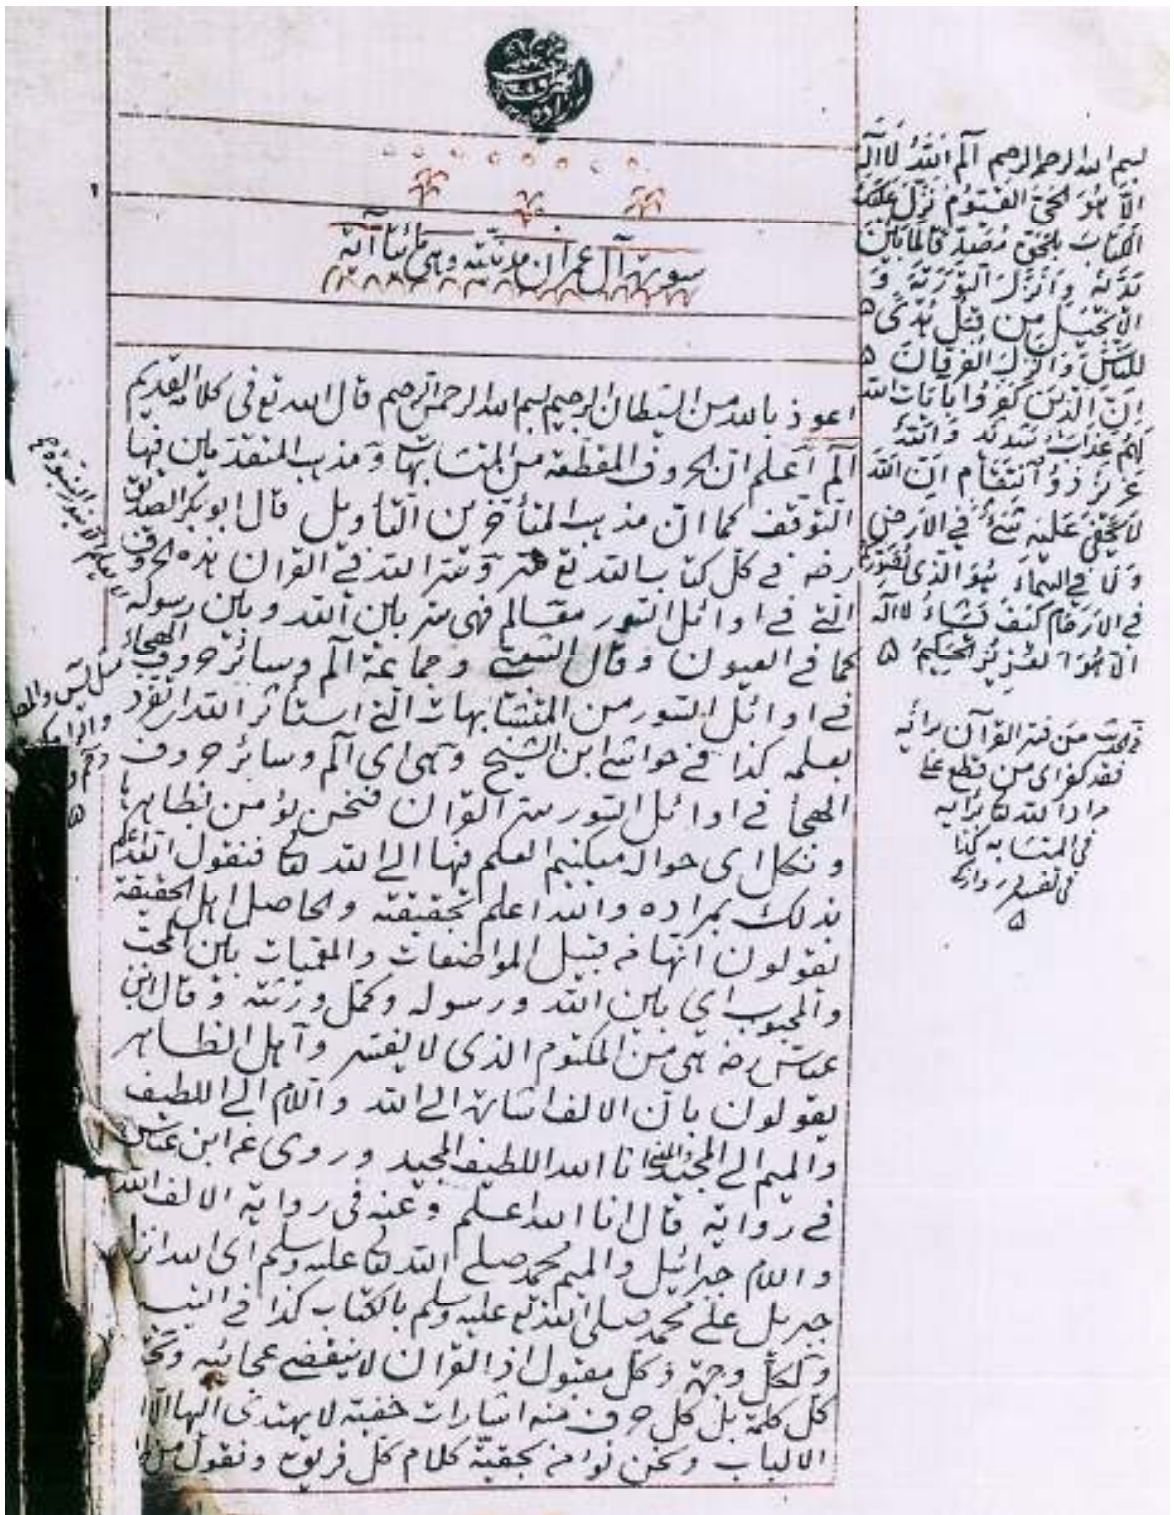 سورة آل عمران مدنية وهي مائتا آية
اعوذ بالله من الشيطان الرجيم بسم الله الرحمن الرحيم قال الله تع في كلامه القديم
الم اعلم ان الحروف المقطعة من المتشابهات ومذهب المتقدمين فيها
التوقف كما ان مذهب المتأخرين التأويل قال ابو بكر الصديق
رضه في كل كتاب الله تع سر وسر الله في القران هذه الحروف
التي في اوائل السور فهي سر بين الله وبين رسوله
كما في العيون وقال الشعبي وجماعة الم وسائر حروف الهجاء
في اوائل السور من المتشابهات التي استأثر الله
بعلمه كذا في حواشي ابن الشيخ وهي اي الم وسائر حروف
الهجا في اوائل السور سر القران فنحن نؤمن بظاهرها
ونكل العلم فيها الى الله تعا فنقول الله اعلم
بذلك بمراده والله اعلم بحقيقته والحاصل اهل الحقيقة
يقولون انها من قبيل المواضعات والمعميات بين المحب
والمحبوب اي بين الله ورسوله وكمل ورثته وقال ابن
عباس رضه هي من المكتوم الذي لا يفسر واهل الظاهر
يقولون بان الالف اشارة الى الله واللام الى اللطيف
والميم الى المجيد انا الله اللطيف المجيد وروى عن ابن عباس
في رواية قال انا الله اعلم وعنه في رواية الالف الله
واللام جبرائيل والميم محمد صلى الله تعا عليه وسلم اى الله انزل
جبريل على محمد صلى الله تع عليه وسلم بالكتاب كذا في
ولكل وجهة وكل مقبول اذ القران لا ينقضي عجائبه وتحت
كل كلمة بل كل حرف منه اشارات خفية لا يهتدى اليها الا
الالباب ونحن نؤمن بحقية كلام كل فريق ونقول
بسم الله الرحمن الرحيم الم الله لا اله
الا هو الحي القيوم نزل عليك
الكتاب بالحق مصدقا لما بين
يديه وانزل التورية و
الانجيل من قبل هدى
للناس وانزل الفرقان
ان الذين كفروا بايات الله
لهم عذاب شديد والله
عزيز ذو انتقام ان الله
لا يخفى عليه شئ في الارض
ولا في السماء هو الذي يصوركم
في الارحام كيف يشاء لا اله
الا هو العزيز الحكيم
من فسر القرآن برأيه
فقد كفر اى من قطع على
مراد الله تعا برأيه
في المتشابه كذا
في تفسير